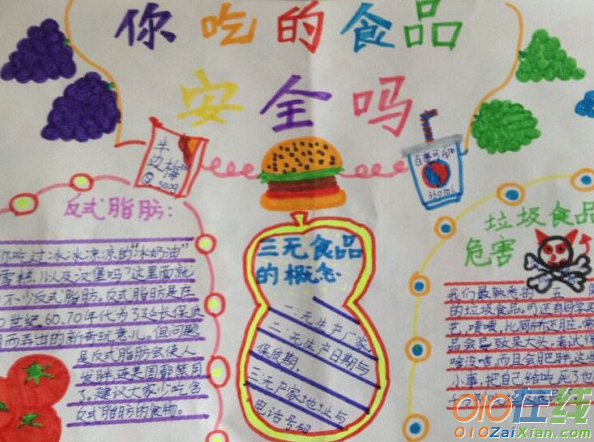 你吃的食品
安全吗
牛
边梅
300g
百事可乐
350ml
反式脂肪:
你吃过冰冰凉凉的“冰奶油”
雪糕,以及汉堡吗?这里面就
不少反式脂肪。反式脂肪是在
世纪60.70年代为了延长保质
而丢出的新奇玩意儿。但问题
是反式脂肪会使人
发胖,连美国都禁用
了,建议大家少吃含
反式脂肪的食物。
三无食品
的概念
一:无生产厂家,
二:无生产日期与
保质期,
三:无厂家地址与
电话号码
垃圾食品
危害
我们最熟悉的
的垃圾食品。
艺,啧啧,比厕所还脏,常
品会导致呆大头,看这样
啥没啥,而且会肥胖,这些
小事,把自己给吃死了也
010在线
010ZaiXian.Com